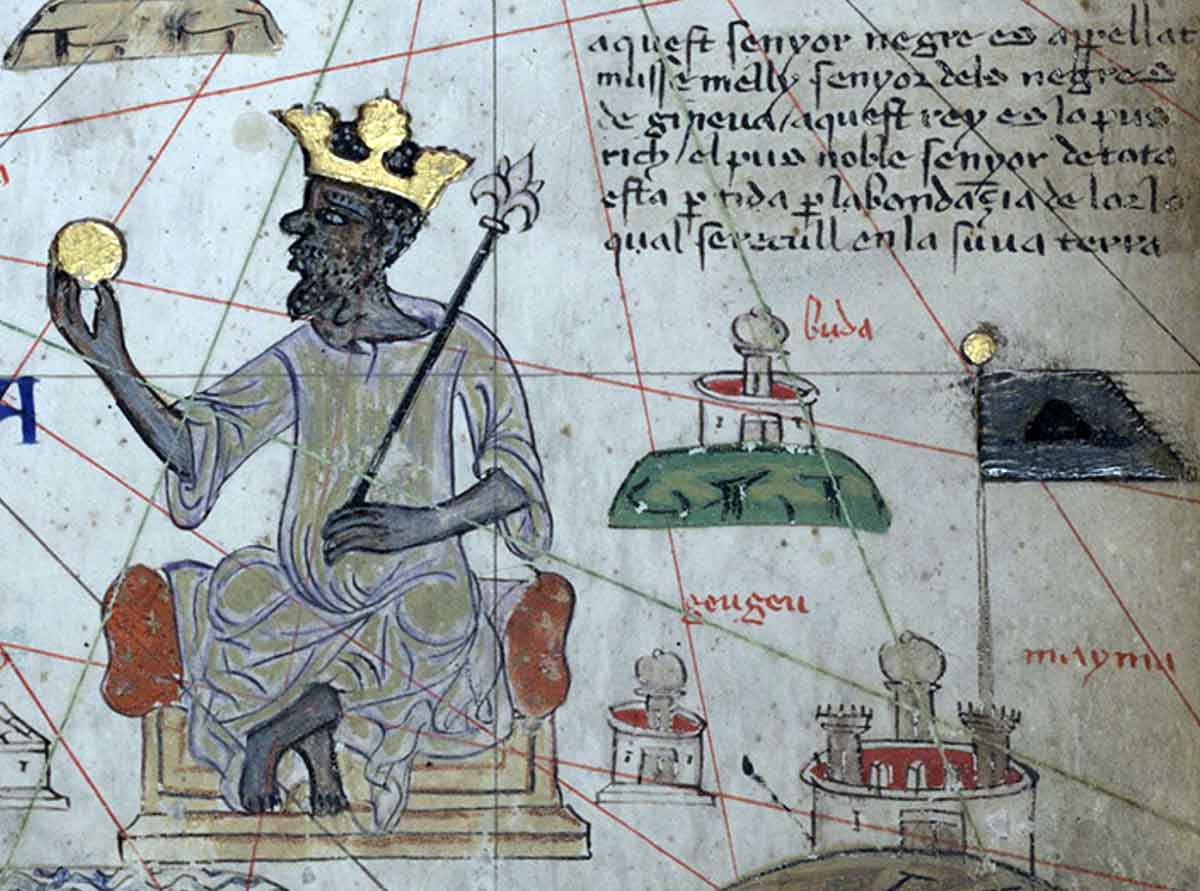 aquest senyor negre es appellat
musse melly senyor dels negres
de gineua / aquest rey es lo pus
rich / el pus noble senyor de tota
esta ptida p labondaçia de lor lo
qual se recull en la suua terra
buda
geugeu
mayma